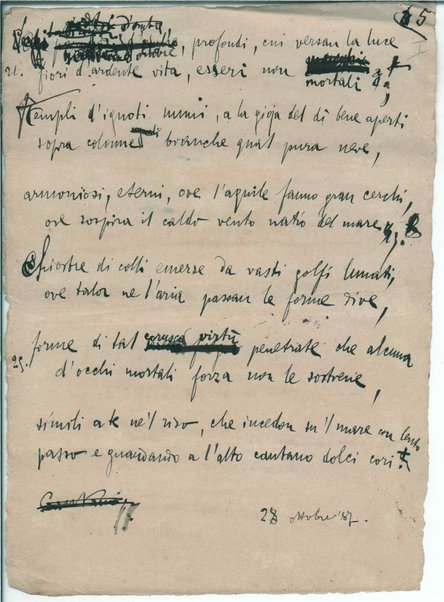 5
profondi, cui versan la luce
21. fiori d'ardente vita, esseri non mortali
Templi d'ignoti numi, a la gioja del dì bene aperti
sopra colonne bianche qual pura neve,
armoniosi, eterni, ove l'aquile fanno gran cerchi,
ove sospira il caldo vento natìo del mare,
Chiostre di colli emerse da vasti golfi lunati,
ove talor ne l'aria passan le forme dive,
forme di tal corusca virtù penetrate che alcuna
25. d'occhi mortali forza non le sostiene,
simili a te ne'l viso, che incedon su 'l mare con lento
passo e guardando a l'alto cantano dolci cori.
28 ottobre '87.